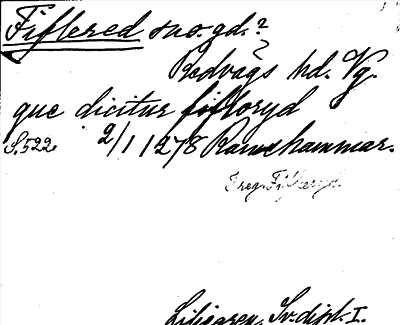 Fiflered sno.gd.?
Redvägs hd. Vg.
que dicitur fifloryd
S.522. 2/1 1278 Ramshammar.
I reg. Fifleryd.
Liljegren, Sv. dipl. I.